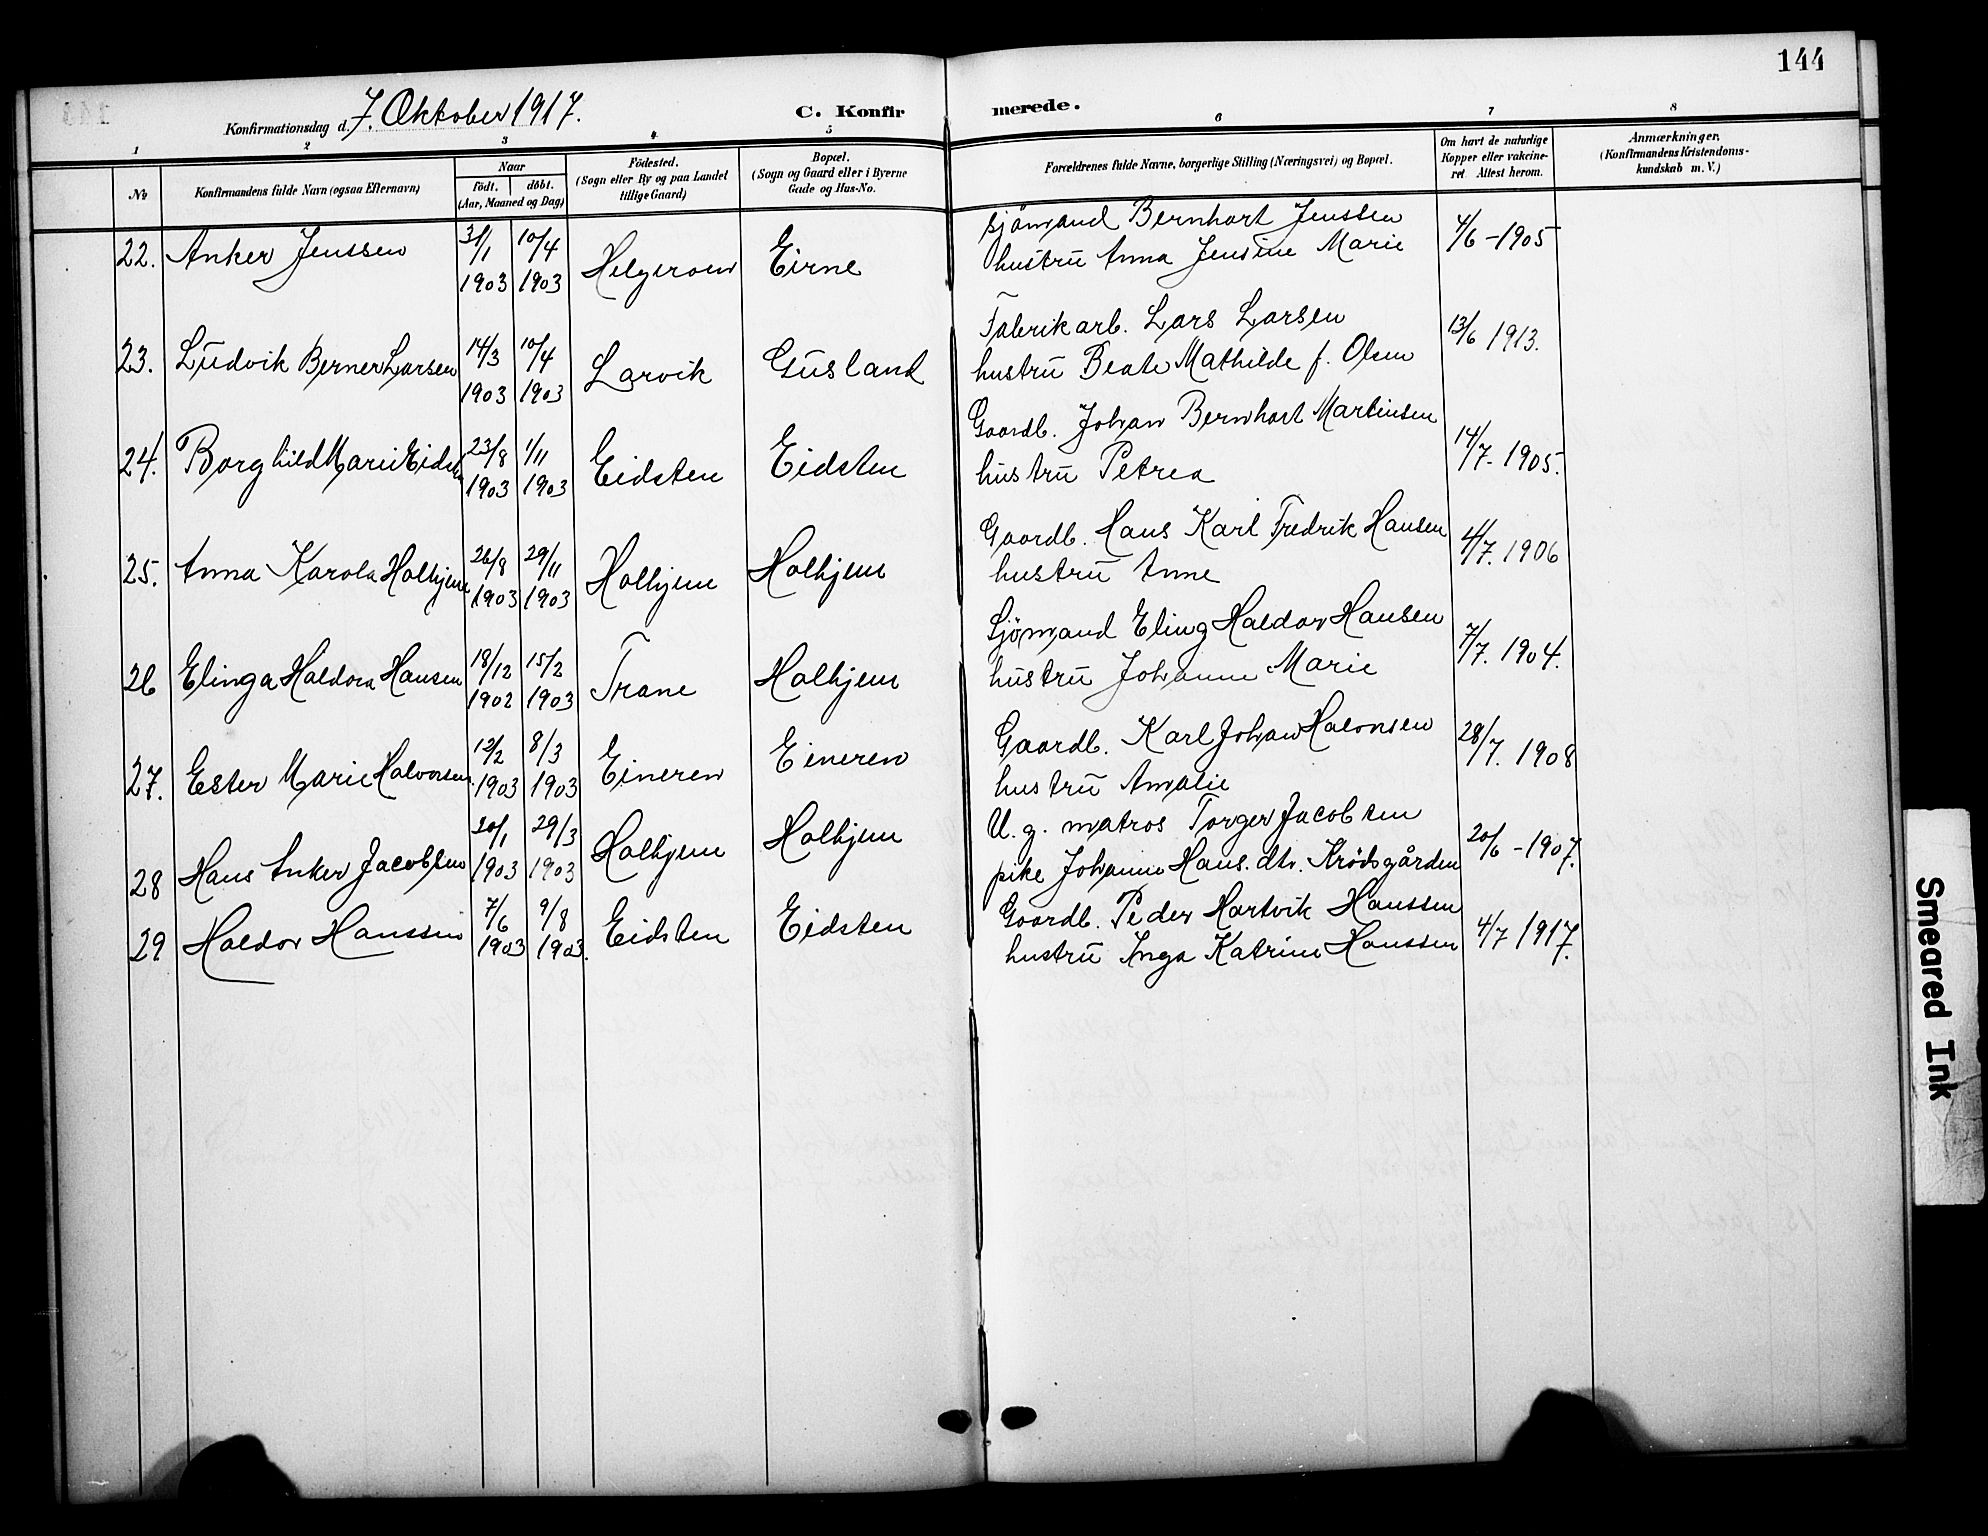 144
Konfirmationsdag d. 7. Oktober 1917.
C. Konfirmerede.
1 2 3 4 5 6 7 8
No.
Konfirmandens fulde Navn (ogsaa Efternavn)
Naar
födt. döbt.
(Aar, Maaned og Dag)
Födested.
(Sogn eller By og paa Landet
tillige Gaard)
Bopæl.
(Sogn og Gaard eller i Byerne
Gade og Hus-No.
Forældrenes fulde Navne, borgerlige Stilling (Næringsvei) og Bopæl.
Om havt de naturlige
Kopper eller vakcine-
ret. Attest herom.
Anmærkninger.
(Konfirmandens Kristendoms-
kundskab m. V.)
22. Anker Jenssen 31/1 1903 10/4 1903 Helgeroen Eirne
sjömand Bernhart Jenssen
hustru Anna Jensine Marie
4/6-1905
23. Ludvik Berner Larsen 14/3 1903 10/4 1903 Larvik Gusland
Fabrikarb. Lars Larsen
hustru Beate Mathilde f. Olsen
13/6 1913.
24. Borghild Marie Eidsten 23/8 1903 1/11 1903 Eidsten Eidsten
Gaardb. Johan Bernhart Martinsen
hustru Petrea
14/7-1905.
25. Anna Karola Halhjem 26/8 1903 29/11 1903 Halhjem Halhjem
Gaardb. Hans Karl Fredrik Hansen
hustru Anne
4/7. 1906
26 Elinga Haldora Hansen 18/12 1902 15/2 1903 Trane Halhjem
Sjømand Eling Haldor Hansen
hustru Johanne Marie
7/7. 1904.
27. Ester Marie Halvorsen. 12/2 1903 8/3 1903 Eineren Eineren
Gaardb. Karl Johan Halvorsen
hustru Amalie
28/7. 1908
28 Hans Anker Jacobsen 20/1 1903 29/3 1903 Halhjem Halhjem
U. g. matros Torger Jacobsen
pike Johanne Hans. dtr. Krødsgården
20/6-1907.
29 Haldor Hanssen 7/6 1903 9/8 1903. Eidsten Eidsten
Gaardb. Peder Hartvik Hanssen
hustru Inga Katrine Hanssen
4/7 1917.
Smeared Ink